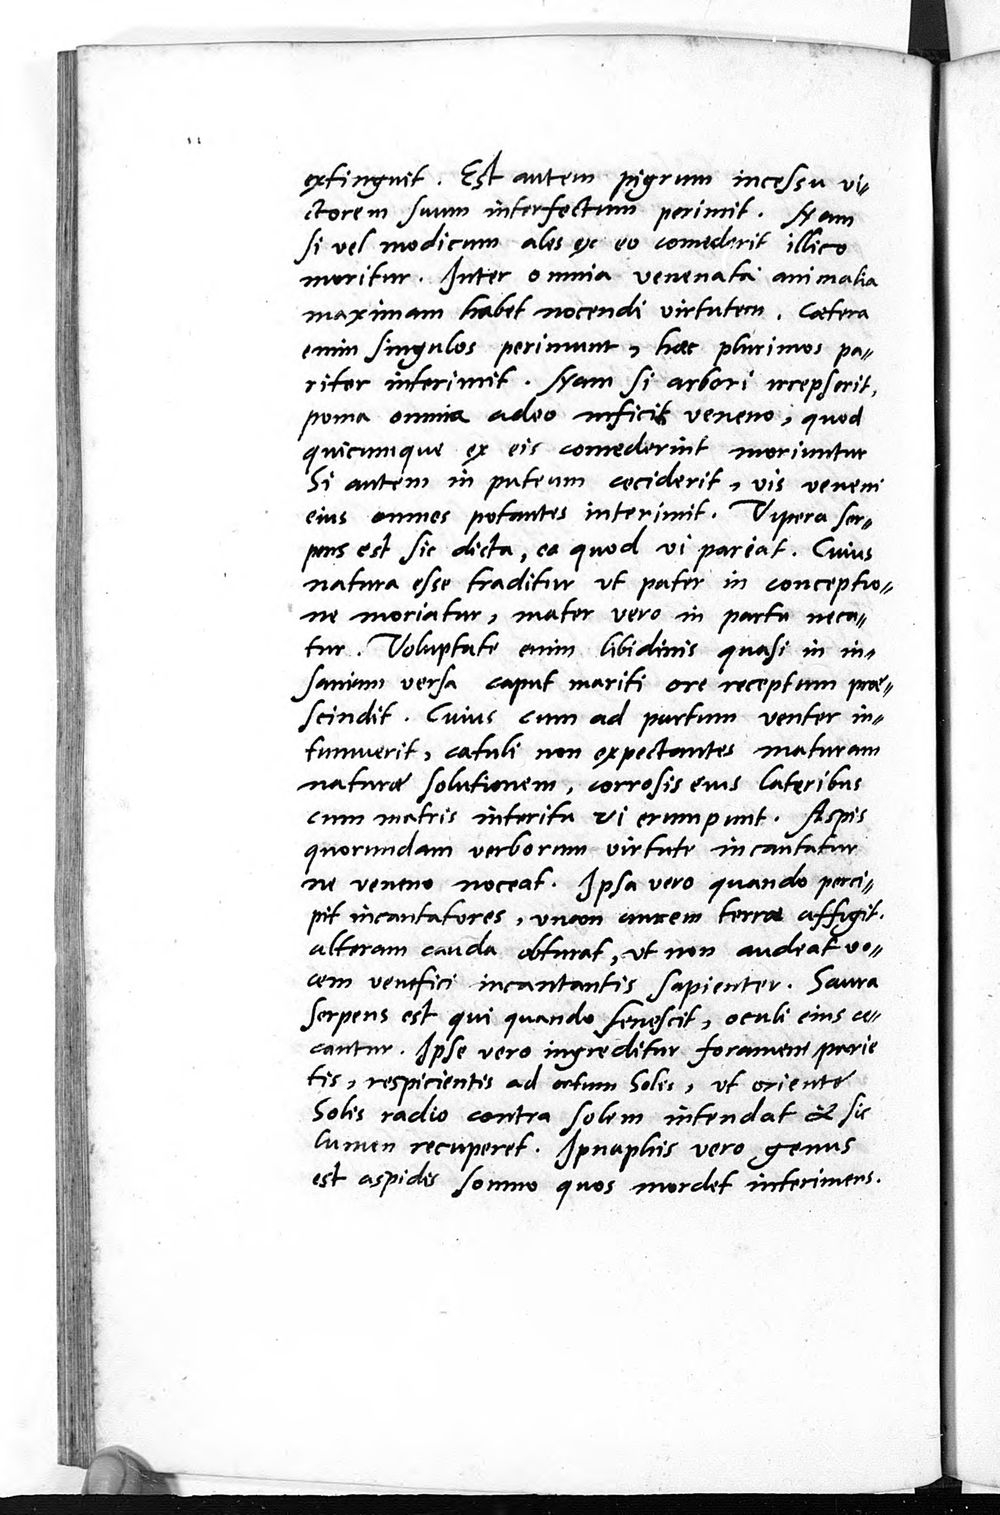 extinguit. Est autem pigrum incessu vi⸗
ctorem suum interfectum perimit. Nam
si vel modicum ales ex eo comederit illico
moritur. Inter omnia venenata animalia
maximam habet nocendi virtutem. Cætera
enim singulos perimunt, hæc plurimos pa⸗
riter interimit. Nam si arbori irrepserit,
poma omnia adeo inficit veneno, quod
quicumque ex eis comederint moriuntur
Si autem in puteum ceciderit, vis veneni
eius omnes potantes interimit. Vipera ser⸗
pens est sic dicta, eo quod vi pariat. Cuius
natura esse traditur ut pater in conceptio⸗
ne moriatur, mater vero in partu neca⸗
tur. Voluptate enim libidinis quasi in in⸗
saniam versa caput mariti ore receptum præ⸗
scindit. Cuius cum ad partum venter in⸗
tumuerit, catuli non expectantes maturam
naturæ solutionem, corrosis eius lateribus
cum matris interitu vi erumpunt. Aspis
quorundam verborum virtute incantatur
ne veneno noceat. Ipsa vero quando perci⸗
pit incantatores, unam aurem terræ affigit.
alteram cauda obturat, ut non audeat vo⸗
cem venefici incantantis sapienter. Saura
serpens est qui quando senescit, oculi eius ce⸗
cantur. Ipse vero ingreditur foramen parie
tis, respicientis ad ortum Solis, ut oriente
Solis radio contra solem intendat & sic
lumen recuperet. Ipnaphis vero genus
est aspidis somno quos mordet interimens.